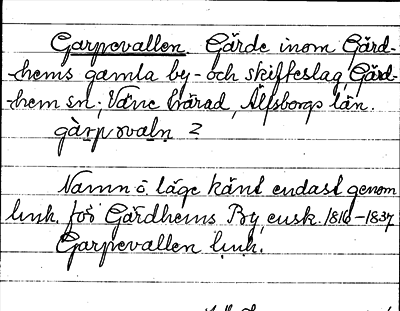 Garpevallen. Gärde inom Gärd-
hems gamla by- och skifteslag, Gärd-
hem sn; Väne härad, Älfsborgs län.
gàrpvaln 2
Namn o läge känt endast genom
lmh. för Gärdhems By, ensk. 1816-1837
Garpevallen lmh.